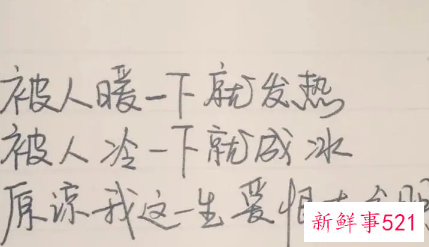 被人暖一下就发热
被人冷一下就成冰
原谅我这一生爱恨
新鲜事521